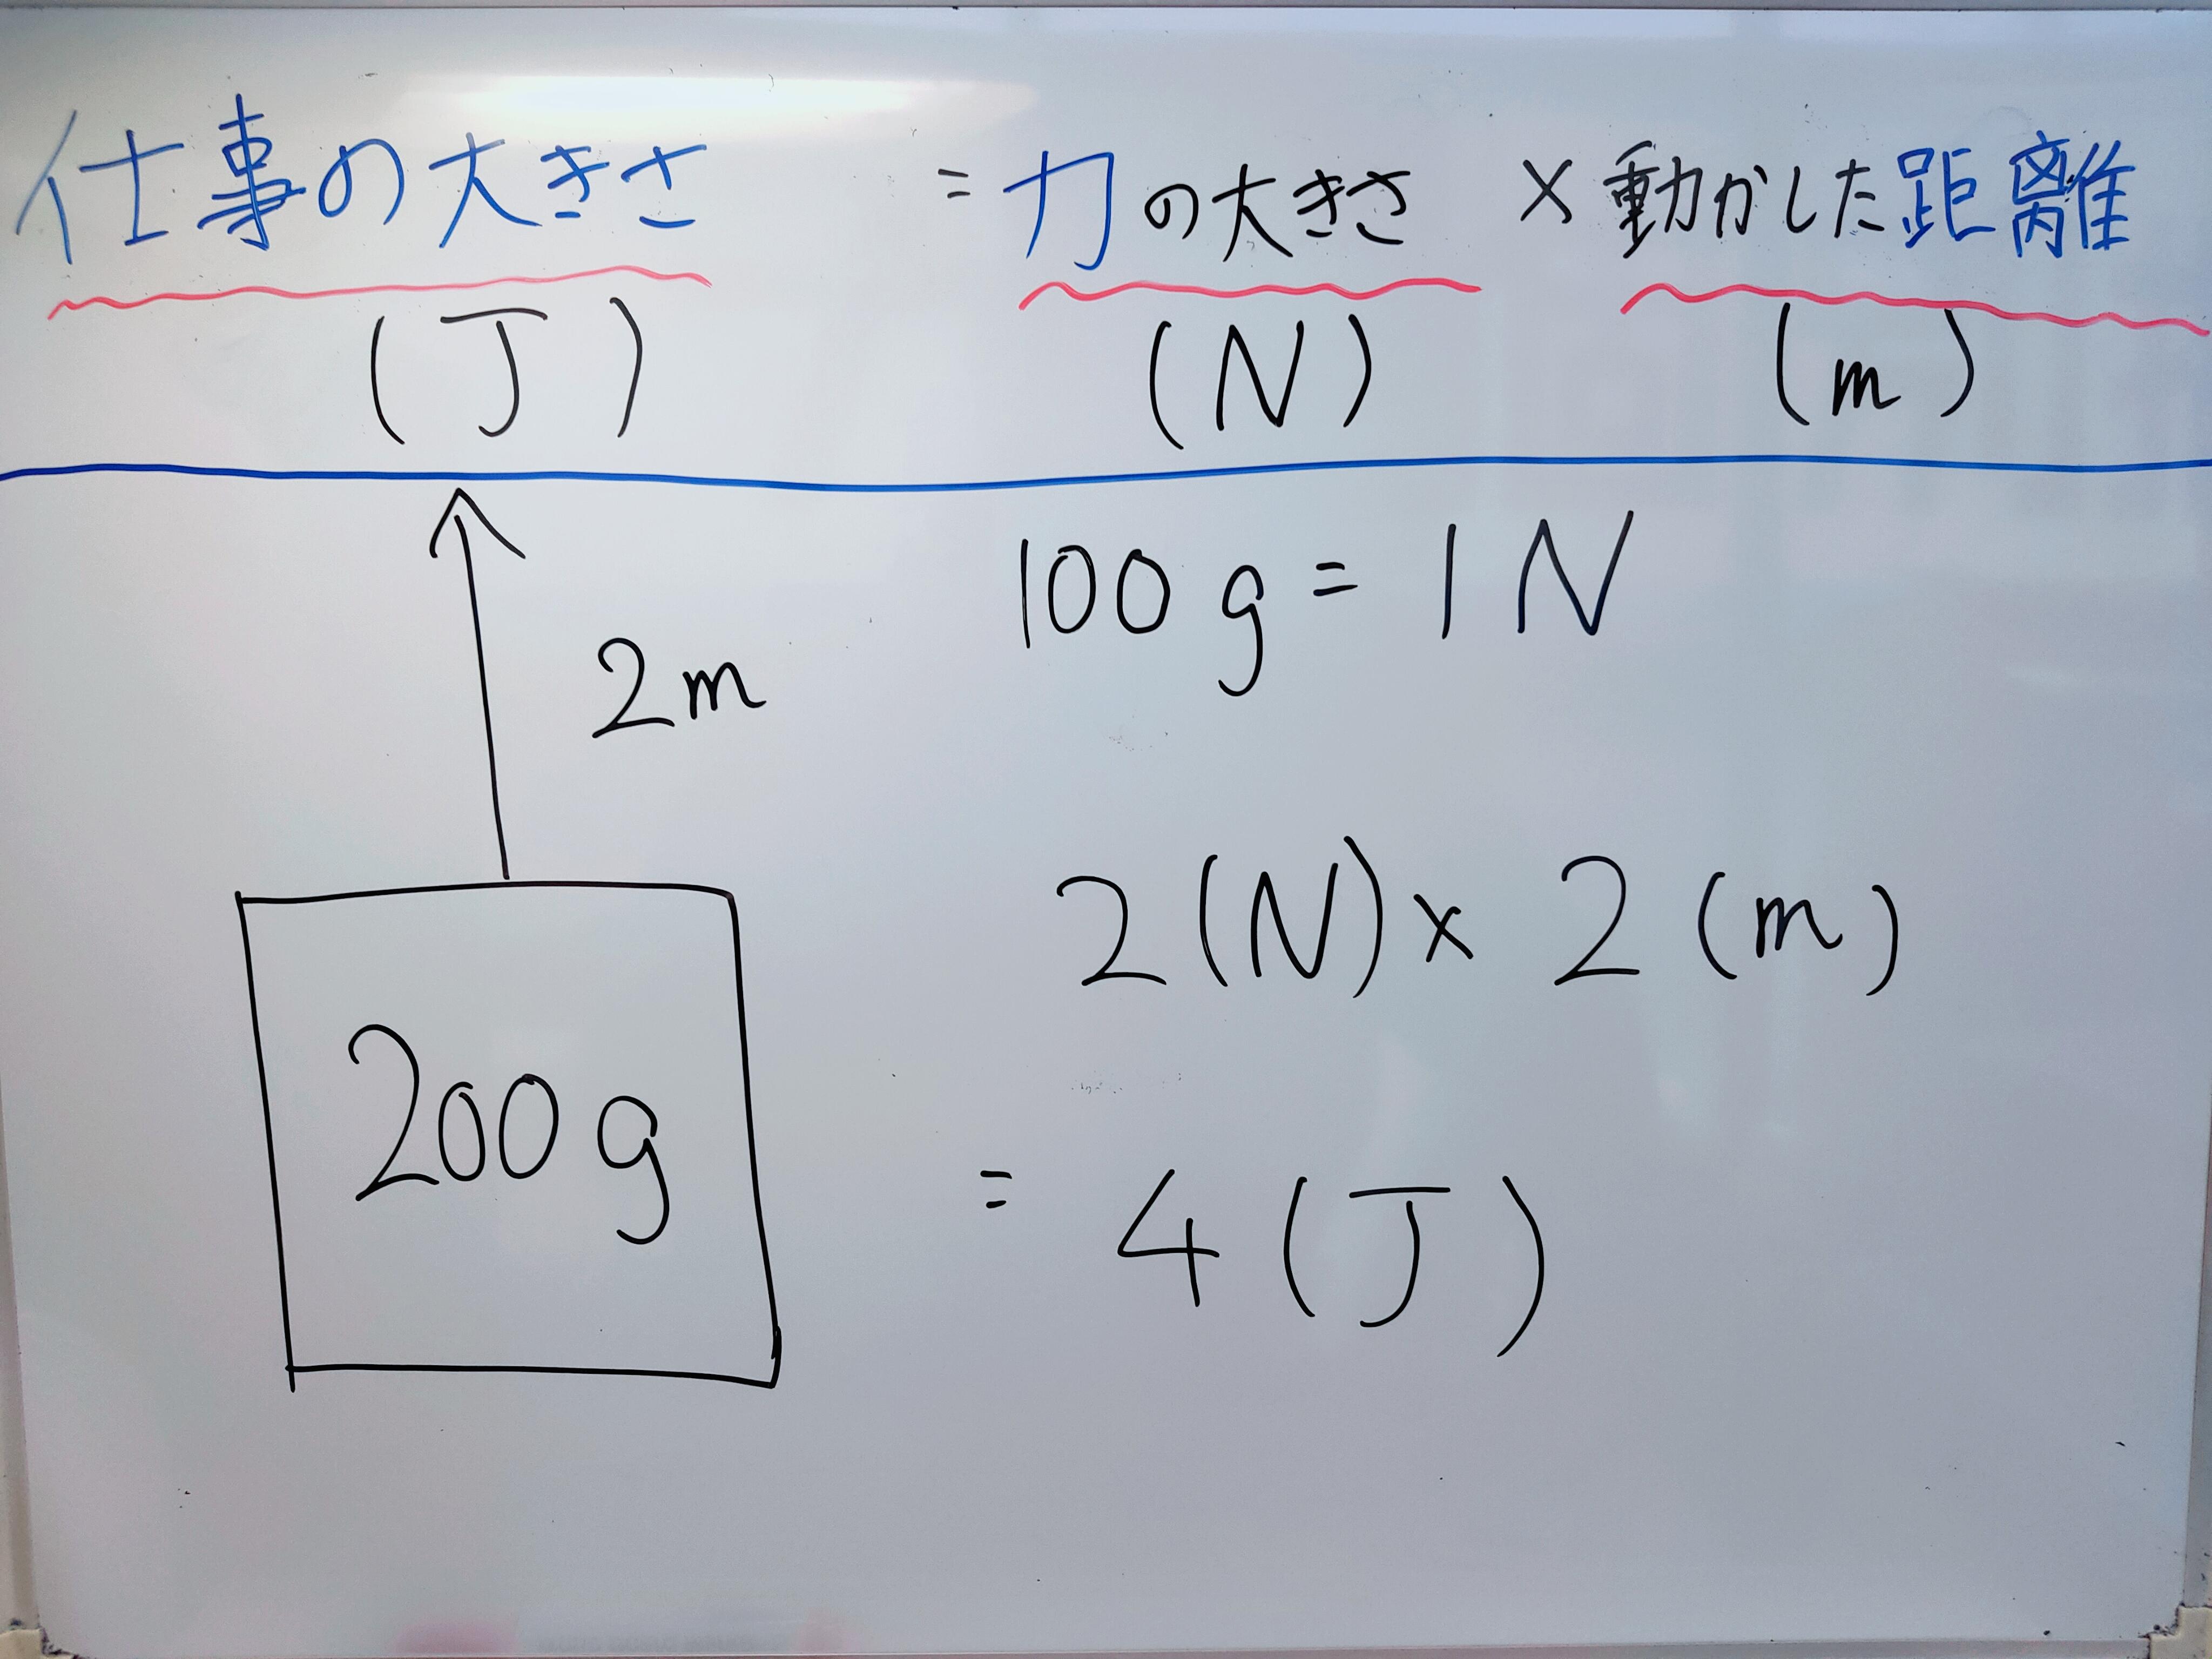 仕事の大きさ = 力の大きさ × 動かした距離
(J) (N) (m)
2m
200g
100g = 1N
2(N) × 2(m)
= 4(J)